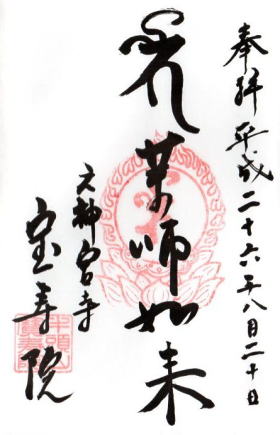 奉拝 平成二十六年八月二十日
薬師如来
元神宮寺
宝寿院